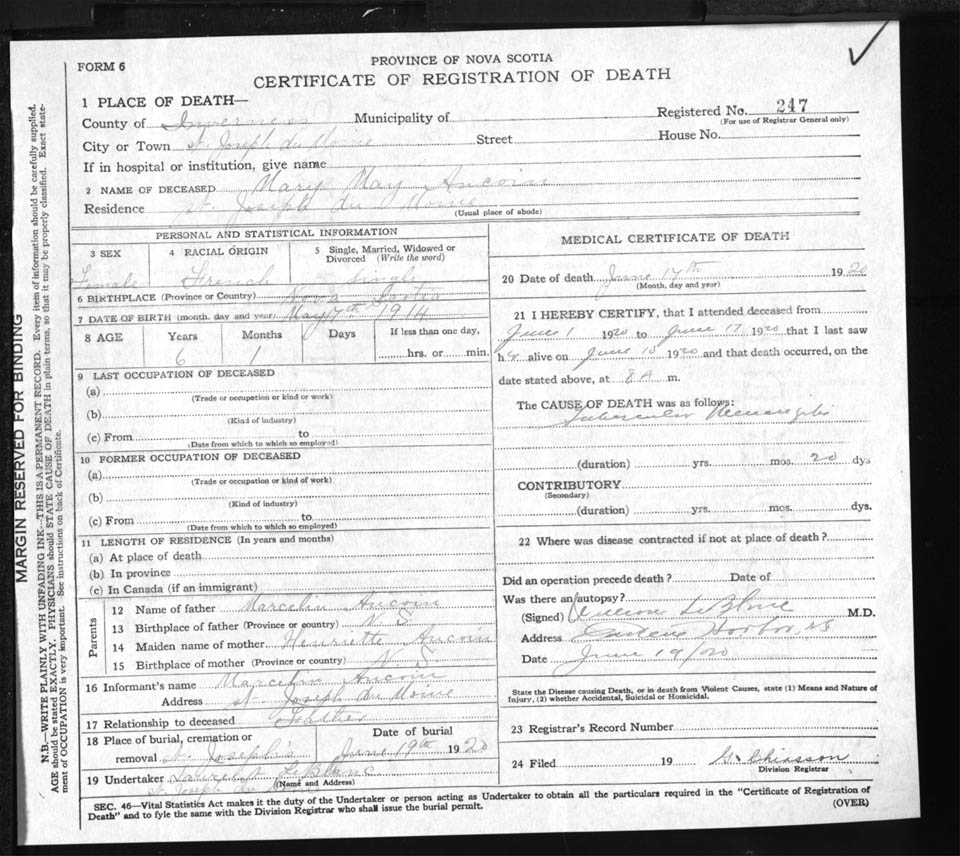 FORM 6
PROVINCE OF NOVA SCOTIA
CERTIFICATE OF REGISTRATION OF DEATH
1 PLACE OF DEATH—
Registered No. 247
(For use of Registrar General only)
County of Inverness Municipality of
City or Town St. Joseph du Moine Street House No.
If in hospital or institution, give name
2 NAME OF DECEASED Mary May Aucoin
Residence St. Joseph du Moine
(Usual place of abode)
PERSONAL AND STATISTICAL INFORMATION
3 SEX 4 RACIAL ORIGIN 5 Single, Married, Widowed or Divorced (Write the word)
Female French Single
6 BIRTHPLACE (Province or Country) Nova Scotia
7 DATE OF BIRTH (month, day and year) May 7th 1914
8 AGE Years Months Days If less than one day,
6 1 hrs. or min.
9 LAST OCCUPATION OF DECEASED
(a)
(Trade or occupation or kind or work)
(b)
(Kind of industry)
(c) From to
(Date from which to which so employed)
10 FORMER OCCUPATION OF DECEASED
(a)
(Trade or occupation or kind of work)
(b)
(Kind of industry)
(c) From to
(Date from which to which so employed)
11 LENGTH OF RESIDENCE (In years and months)
(a) At place of death
(b) In province
(c) In Canada (if an immigrant)
Parents
12 Name of father Marcelin Aucoin
13 Birthplace of father (Province or country) N S
14 Maiden name of mother Henriette Aucoin
15 Birthplace of mother (Province or country) N S.
16 Informant's name Marcelin Aucoin
Address St. Joseph du Moine
17 Relationship to deceased Father
18 Place of burial, cremation or Date of burial
removal St. Joseph's June 19th 1920
19 Undertaker Laurent LeBlanc
(Name and Address)
St. Joseph du Moine
MEDICAL CERTIFICATE OF DEATH
20 Date of death June 17th 1920
(Month, day and year)
21 I HEREBY CERTIFY, that I attended deceased from
June 1 1920 to June 17 1920 that I last saw
her alive on June 15 1920 and that death occurred, on the
date stated above, at 8 A m.
The CAUSE OF DEATH was as follows:
Tubercular Meningitis
(duration) yrs. mos. 20 dys
CONTRIBUTORY
(Secondary)
(duration) yrs. mos. dys.
22 Where was disease contracted if not at place of death?
Did an operation precede death? Date of
Was there an autopsy?
(Signed) LeBlanc M.D.
Address Harbor, NS
Date June 19/20
State the Disease causing Death, or in death from Violent Causes, state (1) Means and Nature of
Injury, (2) whether Accidental, Suicidal or Homicidal.
23 Registrar's Record Number
24 Filed 19 Chiasson
Division Registrar
SEC. 46—Vital Statistics Act makes it the duty of the Undertaker or person acting as Undertaker to obtain all the particulars required in the "Certificate of Registration of
Death" and to fyle the same with the Division Registrar who shall issue the burial permit. (OVER)
MARGIN RESERVED FOR BINDING
N.B.—WRITE PLAINLY WITH UNFADING INK—THIS IS A PERMANENT RECORD. Every item of information should be carefully supplied.
AGE should be stated EXACTLY. PHYSICIANS should STATE CAUSE OF DEATH in plain terms, so that it may be properly classified. Exact state-
ment of OCCUPATION is very important. See instructions on back of Certificate.